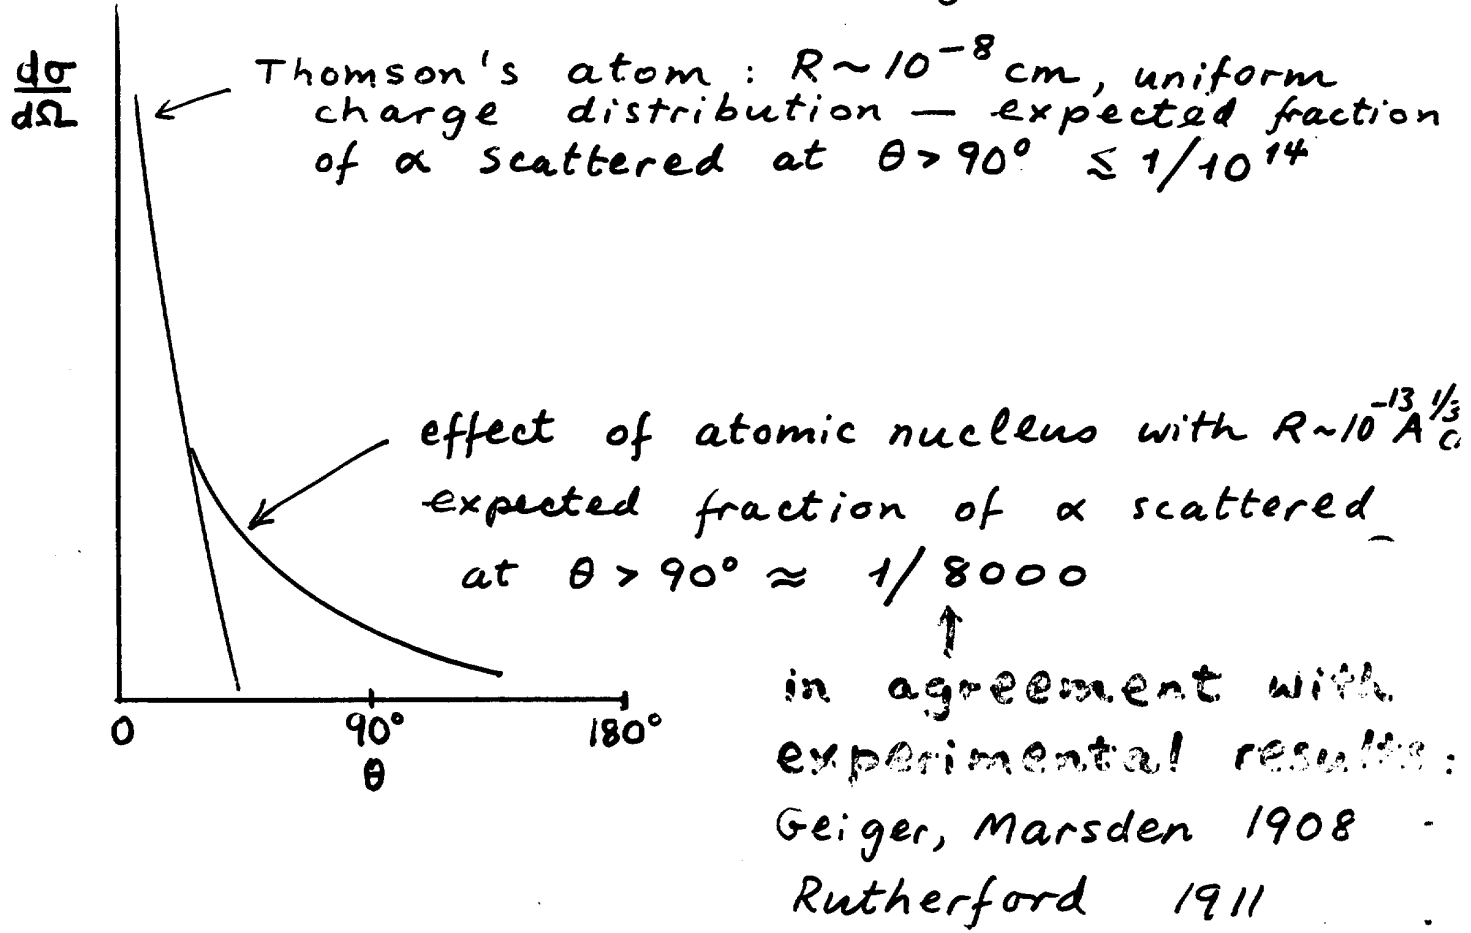 dσ/dΩ
Thomson's atom : R ~ 10⁻⁸ cm, uniform
charge distribution — expected fraction
of α scattered at θ > 90° ≲ 1/10¹⁴
effect of atomic nucleus with R~10⁻¹³ A^1/3 c
expected fraction of α scattered
at θ > 90° ≈ 1/8000
in agreement with
experimental results :
Geiger, Marsden 1908
Rutherford 1911
0 90° 180°
θ